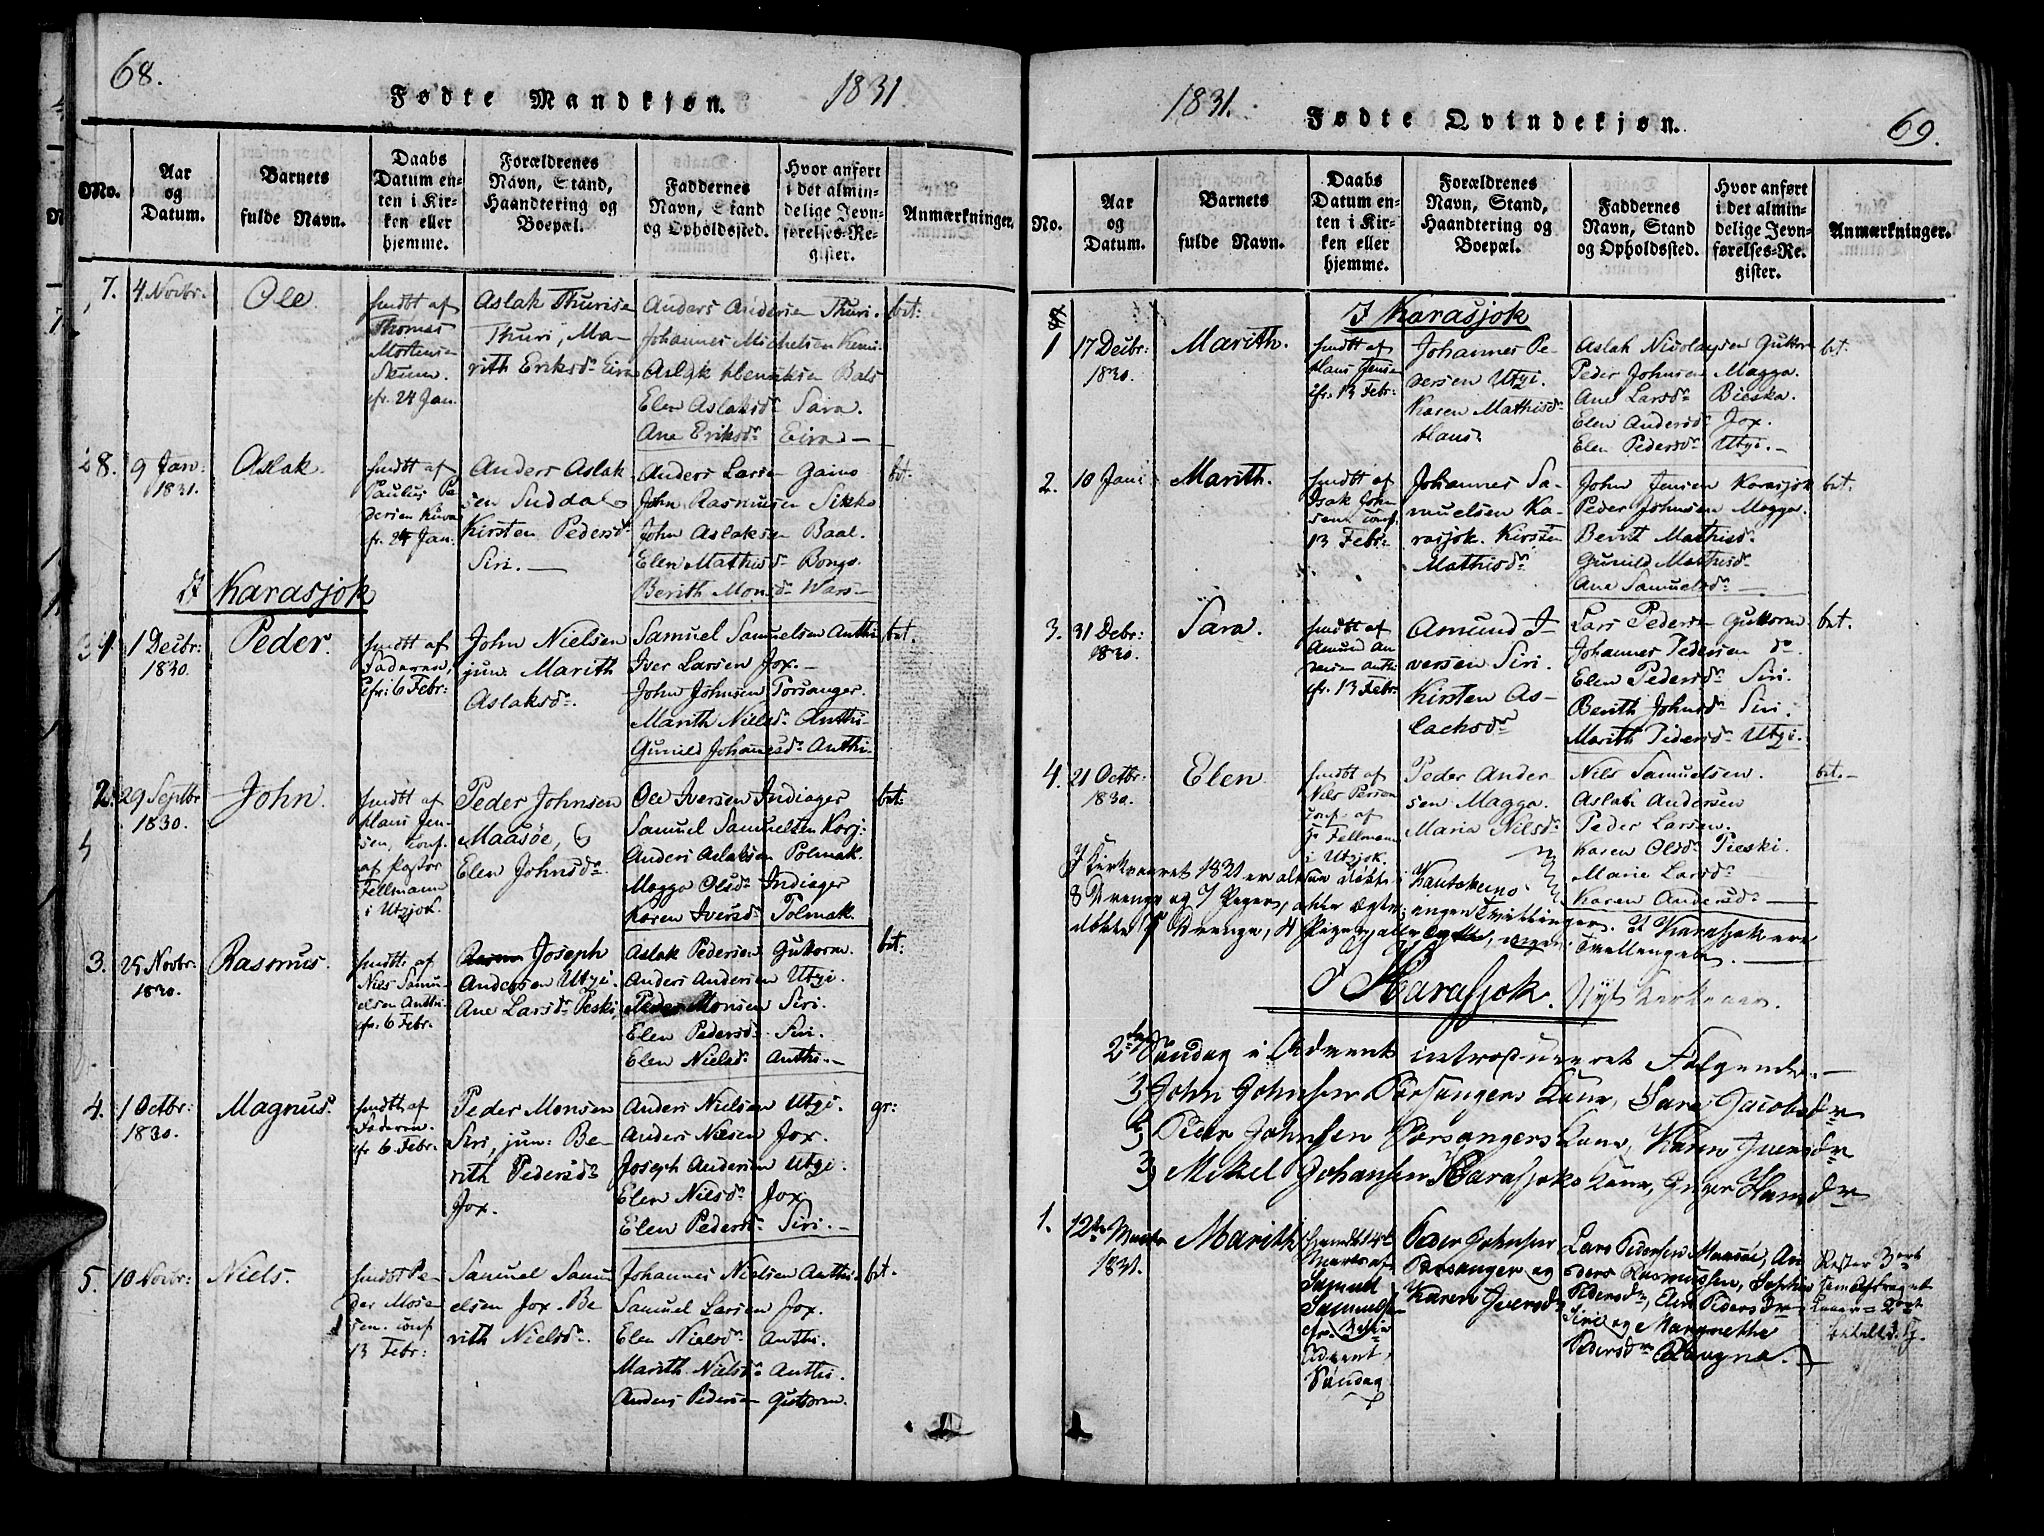 68.
Fødte Mandkjøn.
1831.
No.
Aar
og
Datum.
Barnets
fulde Navn.
Daabs
Datum en-
ten i Kir-
ken eller
hjemme.
Forældrenes
Navn, Stand,
Haandtering og
Boepæl.
Faddernes
Navn, Stand
og Opholdssted.
Hvor anført
i det almin-
delige Jevn-
førelses-Re-
gister.
Anmærkninger.
7.
4 Novbr.
Ole
hmdbt af
Thomas
Mortensen
Skum.
cfr. 24 Jan.
Aslak Thurisen
Thuri, Ma-
rith Eriksdr Eira
Anders Andersen Thuri.
Johannes Michelsen Kemi.
Aslak Henriksen Bals
Elen Aslaksdr Sara.
Ane Eriksdr Eira
bet:
8.
9 Jan:
1831.
Aslak.
hmdbt af
Paulus Pe-
dersen Kuva
fr. 24 Jan.
Anders Aslak-
sen Suddal
Kirsten Pedersdr
Siri.
Anders Larsen Gaino
John Rasmusen Sikko
John Aslaksen Baal.
Elen Mathisdr Bongo.
Berith Monsdr Wars
bet.
I Karasjok
1
1 Decbr:
1830.
Peder.
hmdbt af
Faderen,
cfr: 6 Febr:
John Nielsen
jun. Marith
Aslaksdr.
Samuel Samuelsen Anthi
Iver Larsen Jox.
John Johnsen Porsanger.
Marith Nielsdr Anthi
Gunild Johanesdr Anthi
bet.
2.
29 Septbr
1830.
John.
hmdbt af
Hans Jen-
sen, conf.
af Pastor
Fellmann
i Utzjok.
Peder Johnsen
Maasøe,
Elen Johnsdr
Ole Iversen Indiager
Samuel Samuelsen Korsj:
Anders Aslaksen Polmak.
Magga Olsdr Indiager
Karen Iversdr Polmak.
bet:
3.
25 Novbr:
1830.
Rasmus.
hmdbt: af
Nils Samu-
elsen Anthi
cfr. 6 Febr.
Joseph
Andersen Utzi.
Ane Larsdr Peski.
Aslak Pedersen Guttorm.
Anders Andersen Utzi.
Peder Monsen Siri.
Elen Pedersdr Siri.
Elen Nielsdr Anthi.
bet:
4.
1 Octbr:
1830.
Magnus.
hmdbt af
Faderen.
cfr 6 Febr.
Peder Monsen
Siri, jun: Be-
rith Pedersdr
Jox.
Anders Nielsen Utzi.
Anders Nielsen Jox.
Joseph Andersen Utzi.
Elen Nilsdr Jox.
Elen Pedersdr Siri.
gr:
5.
10 Novbr:
Niels.
hmdbt Pe-
der Mose-
sen. conf
13 Febr:
Samuel Samu-
elsen Jox. Be-
rith Nielsdr.
Johannes Nielsen Anthi
Samuel Larsen Jox.
Elen Nielsdr Anthi.
Marith Nielsdr Anthi.
Anders Pedersen Guttorm.
bet.
1831.
Fødte Qvindekjøn.
69.
No.
Aar
og
Datum.
Barnets
fulde Navn.
Daabs
Datum en-
ten i Kir-
ken eller
hjemme.
Forældrenes
Navn, Stand,
Haandtering og
Boepæl.
Faddernes
Navn, Stand
og Opholdssted.
Hvor anført
i det almin-
delige Jevn-
førelses-Re-
gister.
Anmærkninger.
I Karasjok
1
17 Decbr:
1830.
Marith.
hmdbt af
Hans Jensen
cfr. 13 Febr:
Johannes Pe-
dersen Utzi.
Karen Mathisdr
Hans
Aslak Nicolaysen Guttorm
Peder Johnsen Magga.
Ane Larsdr Bieska.
Elen Andersdr Jox.
Elen Pedersdr Utzi.
bet.
2.
10 Jan:
Marith.
hmdbt af
Isak John-
sen. conf.
13 Febr:
Johannes Sa-
muelsen Ka-
rasjok. Kirsten
Mathisdr
John Jensen Korasjok
Peder Johnsen Magga.
Berit Mathisdr
Gunild Mathisdr
Ane Samuelsdr
bet.
3.
31 Debr:
1830.
Sara.
hmdbt af
Amund An-
dersen Anthi
cfr. 13 Febr.
Asmund I-
versen Siri.
Kirsten As-
lachsdr
Lars Pedersen Guttorm
Johannes Pedersen do.
Elen Pedersdr Siri.
Berith Johnsdr Siri.
Marith Pedersdr Utzi.
bet.
4.
21 Octbr:
1830.
Elen
hmdbt af
Nils Persen
conf. af
Fellmann
i Utzjok.
Peder Ander-
sen Magga.
Maria Nilsdr
Nils Samuelsen.
Aslak Andersen
Peder Larsen.
Karen Olsdr Pieski.
Marie Larsdr
Karen Andersdr
bet.
I Kirkeaaret 1831 er altsaa døbte i Kautokeino
8 Drenge og 7 Piger, alle Ægte; ingen Tvillinger. I Karasjok ere
døbte 5 Drenge, 4 Piger, alle Ægte, ingen Tvillinger.
I Karasjok. Nyt Kirkeaar.
2den Søndag i Advent introduceret Følgende.
3, John Johnsen Porsangers Kone, Sara Jacobsdr
3, Peder Johnsen Porsangers Kone, Karen Iversdr
3, Mikel Johansen Karasjoks Kone, Inger Hansdr
1.
12te Marts
1831.
Marith
hmdbt 14de
Marts af
Samuel
Samuelsen
cfr. 2den
Advent
Søndag
Peder Johnsen
Porsanger og
Karen Iversdr
Lars Pedersen Maasøe, An-
ders Rasmussen, Sophie
Pedersdr, Elen Pedersdr
Siri og Margrethe
Pedersdr